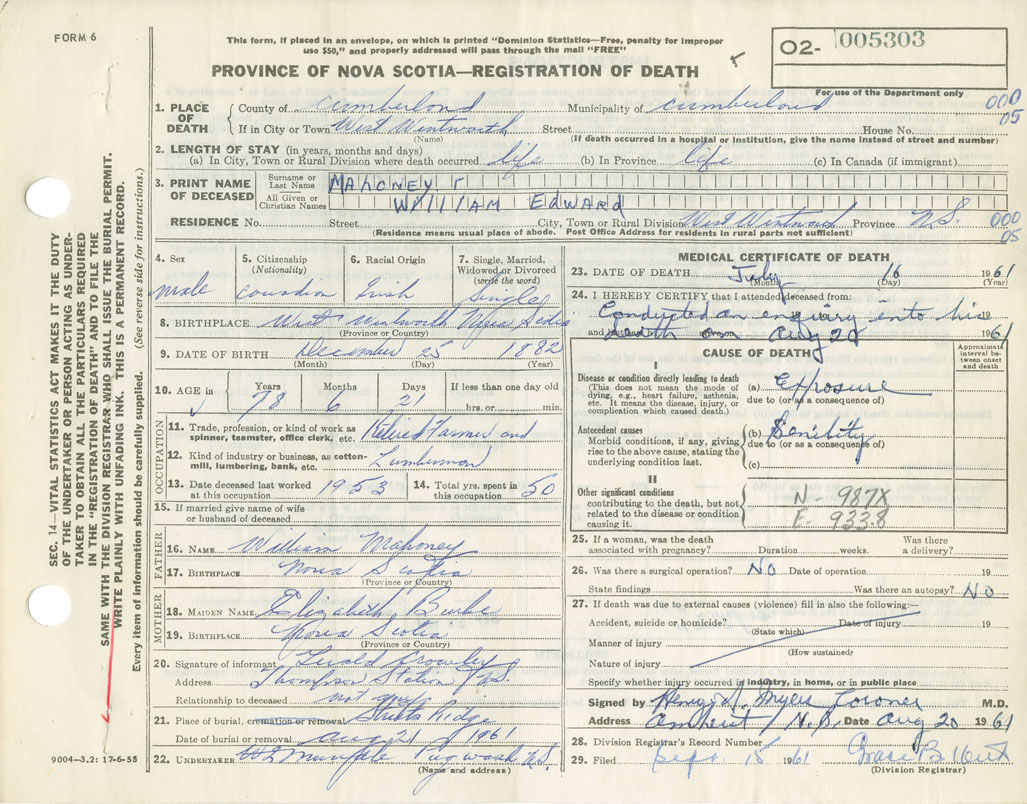 FORM 6
This form, if placed in an envelope, on which is printed "Dominion Statistics—Free, penalty for improper
use $50," and properly addressed will pass through the mail "FREE"
PROVINCE OF NOVA SCOTIA—REGISTRATION OF DEATH
O2- 005303
For use of the Department only
1. PLACE OF DEATH County of Cumberland Municipality of Cumberland 000 05
If in City or Town West Wentworth Street House No.
(Name) (If death occurred in a hospital or institution, give the name instead of street and number)
2. LENGTH OF STAY (in years, months and days)
(a) In City, Town or Rural Division where death occurred life (b) In Province life (c) In Canada (if immigrant)
3. PRINT NAME OF DECEASED Surname or Last Name MAHONEY
All Given or Christian Names WILLIAM EDWARD
RESIDENCE No. Street City, Town or Rural Division West Wentworth Province N.S. 000 05
(Residence means usual place of abode. Post Office Address for residents in rural parts not sufficient)
4. Sex male
5. Citizenship (Nationality) Canadian
6. Racial Origin Irish
7. Single, Married, Widowed or Divorced (write the word) Single
8. BIRTHPLACE West Wentworth Nova Scotia
(Province or Country)
9. DATE OF BIRTH December 25 1882
(Month) (Day) (Year)
10. AGE in Years 78 Months 6 Days 21 If less than one day old hrs. or min.
OCCUPATION
11. Trade, profession, or kind of work as spinner, teamster, office clerk, etc. Retired Farmer and
12. Kind of industry or business, as cotton-mill, lumbering, bank, etc. Lumberman
13. Date deceased last worked at this occupation 1953 14. Total yrs. spent in this occupation 50
15. If married give name of wife or husband of deceased
FATHER
16. NAME William Mahoney
17. BIRTHPLACE Nova Scotia
(Province or Country)
MOTHER
18. MAIDEN NAME Elizabeth Burke
19. BIRTHPLACE Nova Scotia
(Province or Country)
20. Signature of informant Crowley
Address Thompson Station N.S.
Relationship to deceased not any
21. Place of burial, cremation or removal Streets Ridge
Date of burial or removal aug 21 1961
22. UNDERTAKER Pugwash N.S.
(Name and address)
9004—3.2: 17-6-55
MEDICAL CERTIFICATE OF DEATH
23. DATE OF DEATH July 16 1961
(Month) (Day) (Year)
24. I HEREBY CERTIFY that I attended deceased from:
Conducted an enquiry into his 19
death on Aug 20 1961
CAUSE OF DEATH
Approximate interval between onset and death
I
Disease or condition directly leading to death
(This does not mean the mode of dying, e.g., heart failure, asthenia, etc. It means the disease, injury, or complication which caused death.)
(a) Exposure
due to (or as a consequence of)
Antecedent causes
Morbid conditions, if any, giving rise to the above cause, stating the underlying condition last.
(b) Senility
due to (or as a consequence of)
(c)
II
Other significant conditions
contributing to the death, but not related to the disease or condition causing it.
N - 987X
E. 933.8
25. If a woman, was the death associated with pregnancy? Duration weeks. Was there a delivery?
26. Was there a surgical operation? NO Date of operation 19
State findings Was there an autopsy? NO
27. If death was due to external causes (violence) fill in also the following:
Accident, suicide or homicide? Date of injury 19
(State which)
Manner of injury
(How sustained)
Nature of injury
Specify whether injury occurred in industry, in home, or in public place
Signed by Coroner M.D.
Address Amherst, N.S. Date Aug 20 1961
28. Division Registrar's Record Number
29. Filed Sept. 15 1961 Grace B.
(Division Registrar)
SEC. 14—VITAL STATISTICS ACT MAKES IT THE DUTY
OF THE UNDERTAKER OR PERSON ACTING AS UNDER-
TAKER TO OBTAIN ALL THE PARTICULARS REQUIRED
IN THE "REGISTRATION OF DEATH" AND TO FILE THE
SAME WITH THE DIVISION REGISTRAR WHO SHALL ISSUE THE BURIAL PERMIT.
WRITE PLAINLY WITH UNFADING INK. THIS IS A PERMANENT RECORD.
Every item of information should be carefully supplied. (See reverse side for instructions.)